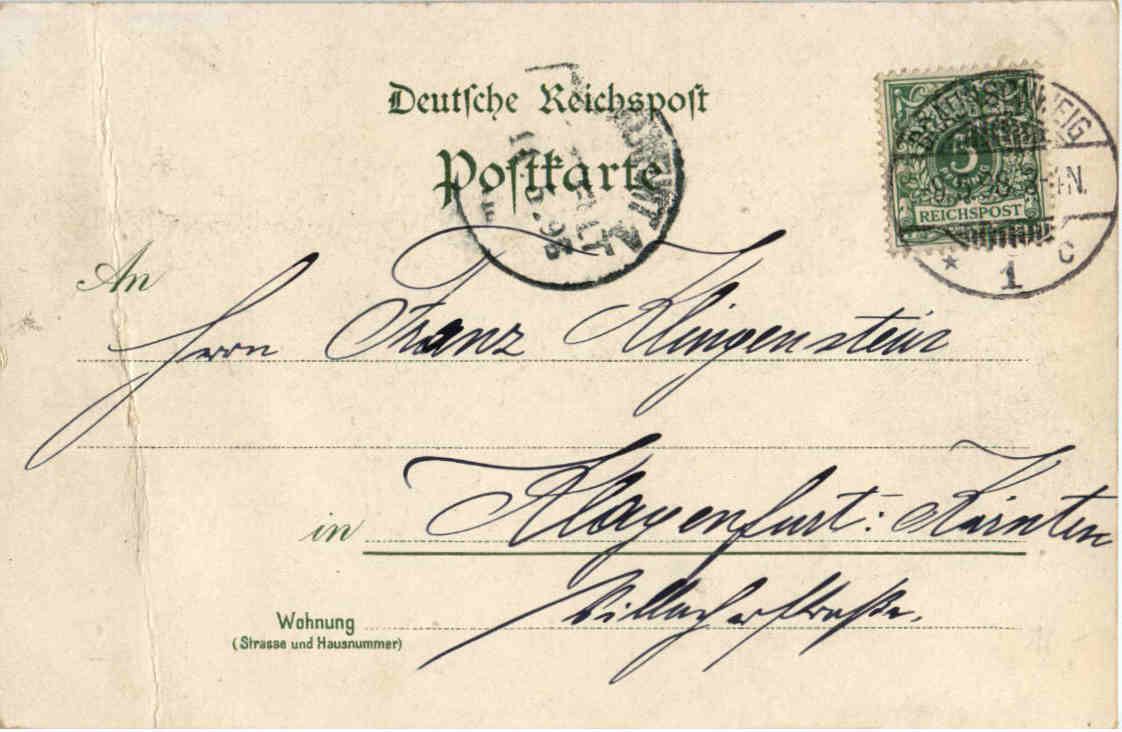 Deutsche Reichspost
Postkarte
BRAUNSCHWEIG
REICHSPOST
* 1 c
An
Herrn Franz Klingenstein
in Klagenfurt: Kärnten
Villacherstraße.
Wohnung
(Strasse und Hausnummer)